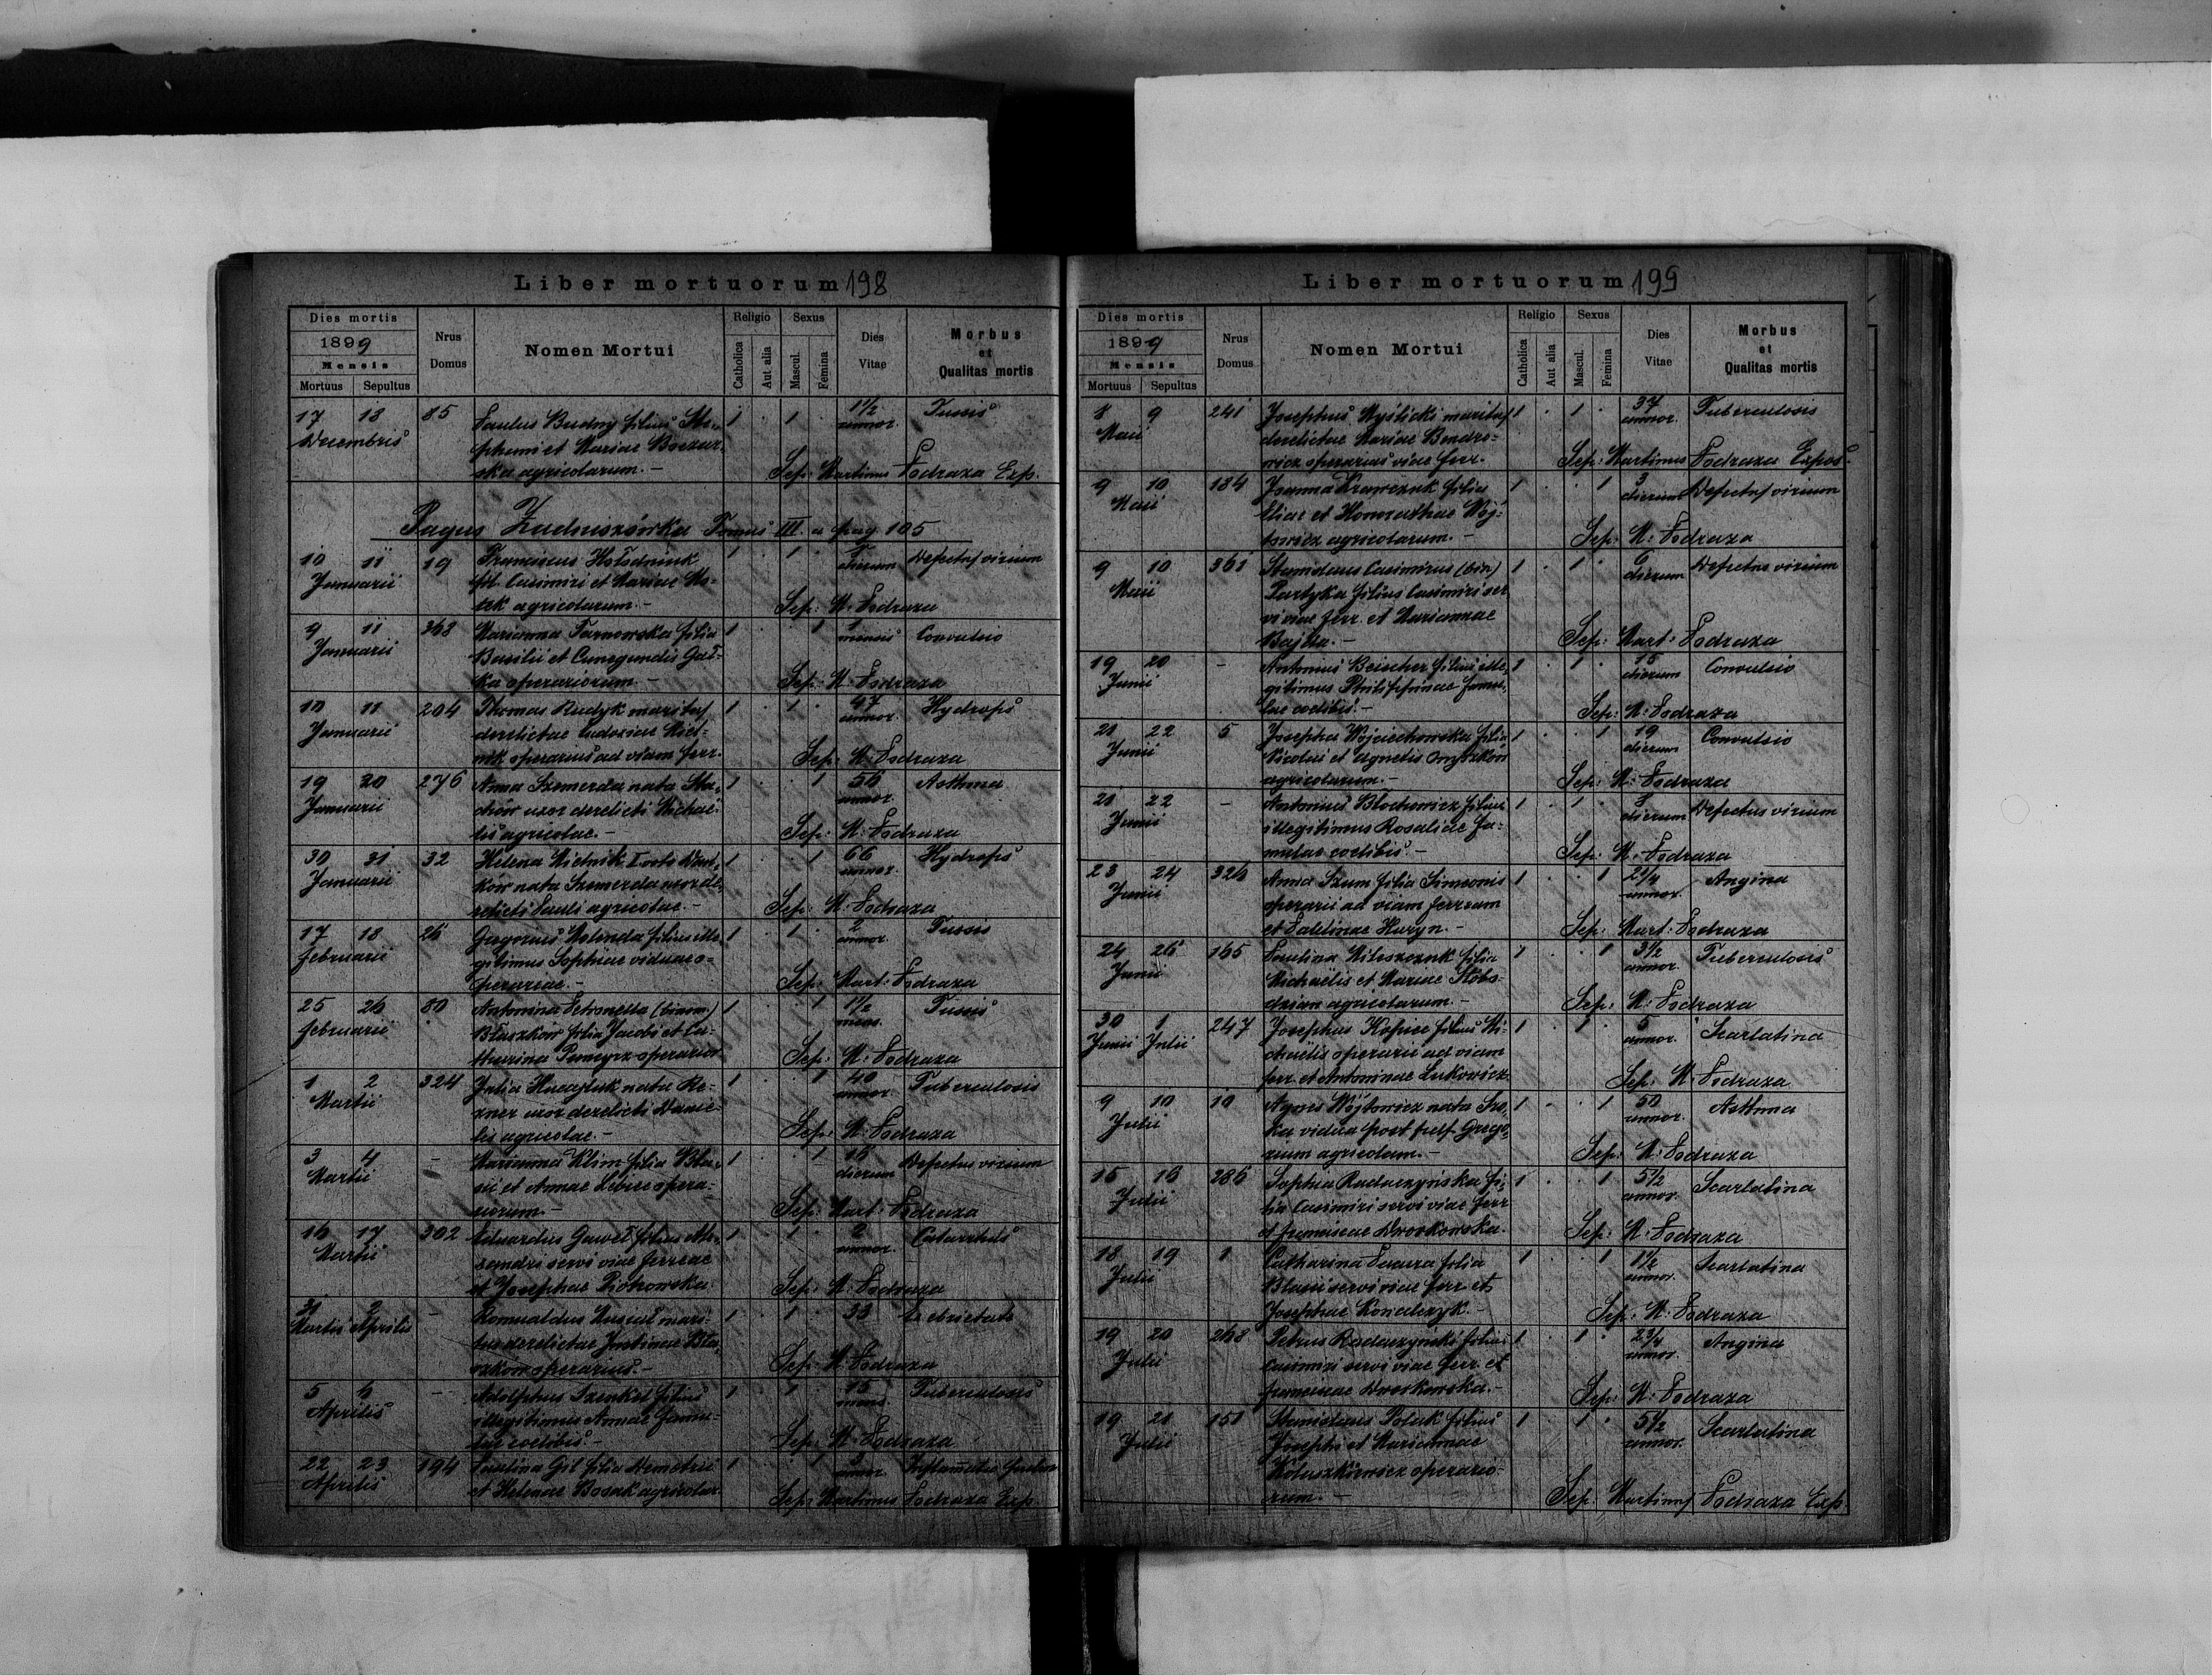 Liber mortuorum 198
Dies mortis
1899
Mensis
Mortuus Sepultus
Nrus Domus
Nomen Mortui
Religio
Catholica
Aut alia
Sexus
Mascul.
Femina
Dies Vitae
Morbus
et
Qualitas mortis
17 18 85 Paulus Budny filius Ste- 1 . 1 . 1 1/2 Tussis
Decembris phani et Mariae Boczar- annor.
ska agricolarum. — Sep: Martinus Podraza Exp.
Pagus Zadniszówka Tomus III. a pag. 105
10 11 19 Franciscus Hołodniuk 1 . 1 . dierum Defectus virium
Januarii fil. Casimiri et Mariae
agricolarum. — Sep: M. Podraza
9 11 363 Marianna Tarnowska filia 1 . . 1 1 mensis Convulsio
Januarii Basilii et Cunegundis Gał-
ka operariorum. — Sep: M. Podraza
10 11 204 Thomas Rudyk maritus 1 . 1 . 47 annor. Hydrops
Januarii derelictae Eudoxiae Miel-
nik operarius ad viam ferr. Sep: M. Podraza
19 20 276 Anna Szmerda nata Sta- 1 . . 1 56 annor. Asthma
Januarii chów uxor derelicti Michaë-
lis agricolae. — Sep: M. Podraza
30 31 32 Helena Mielnik I voto 1 . . 1 66 annor. Hydrops
Januarii ków nata Szmerda uxor de-
relicti Pauli agricolae. — Sep: M. Podraza
17 18 26 Gregorius Molenda filius ille- 1 . 1 . 2 annor. Tussis
februarii gitimus Sophiae viduae o-
perariae. — Sep: Mart. Podraza
25 26 80 Antonina Petronella (binom.) 1 . . 1 1 1/2 mens. Tussis
februarii Błaszków filia Jacobi et Ca-
tharina operarior. Sep: M. Podraza
1 2 324 Julia nata Re- 1 . . 1 40 annor. Tuberculosis
Martii xner uxor derelicti Danie-
lis agricolae. — Sep: M. Podraza
3 4 — Marianna Klim filia Bla- 1 . . 1 16 dierum Defectus virium
Martii sii et Annae opera-
riorum. — Sep: Mart. Podraza
16 17 302 Eduardus Gaweł filius Ale- 1 . 1 . 2 annor. Catarrhus
Martii xandri servi viae ferreae
et Josephae Piotrowska. Sep: M. Podraza
31 2 — Romualdus Musiał mari- 1 . 1 . 33 Ex ebrietate
Martii Aprilis tus derelictae Justinae Bła-
szków operarius. — Sep: M. Podraza
5 6 — Adolphus filius 1 . 1 . 15 mens. Tuberculosis
Aprilis illegitimus Annae famu-
lae coelibis. — Sep: M. Podraza
22 23 194 Paulina Gil filia Demetrii 1 . . 1 3 annor.
Aprilis et Helenae Bosak agricolar. Sep: Martinus Podraza Exp.
Liber mortuorum 199
Dies mortis
1899
Mensis
Mortuus Sepultus
Nrus Domus
Nomen Mortui
Religio
Catholica
Aut alia
Sexus
Mascul.
Femina
Dies Vitae
Morbus
et
Qualitas mortis
8 9 241 Josephus Myślicki maritus 1 . 1 . 37 annor. Tuberculosis
Maii derelictae Mariae Bendro-
wicz operarius viae ferr. Sep: Martinus Podraza Expos.
9 10 184 Joanna Krawczuk filia 1 . . 1 3 dierum Defectus virium
Maii Eliae et Honorathae Wój-
towicz agricolarum. — Sep: M. Podraza
9 10 361 Stanislaus Casimirus (bin) 1 . 1 . 6 dierum Defectus virium
Maii Partyka filius Casimiri ser
vi viae ferr. et Mariannae
Bajka. — Sep: Mart: Podraza
19 20 — Antonius Beischer filius ille- 1 . 1 . 15 dierum Convulsio
Junii gitimus Philippinae famu-
lae coelibis. — Sep: M. Podraza
21 22 5 Josepha Wojciechowska filia 1 . . 1 19 dierum Convulsio
Junii Nicolai et Agnetis Onyszków
agricolarum. — Sep: M. Podraza
21 22 — Antonius Błochowicz filius 1 . 1 . dierum Defectus virium
Junii illegitimus Rosaliae fa-
mulae coelibis. — Sep: M. Podraza
23 24 326 Anna Szum filia Simeonis 1 . . 1 2 3/4 annor. Angina
Junii operarii ad viam ferream
et Huzyn. — Sep: Mart: Podraza
24 26 165 Paulina Mileszczuk filia 1 . . 1 3 1/2 annor. Tuberculosis
Junii Michaëlis et Mariae Słobo-
dzian agricolarum. — Sep: M. Podraza
30 1 247 Josephus Kopiec filius Mi- 1 . 1 . 5 annor. Scarlatina
Junii Julii chaëlis operarii ad viam
ferr. et Antoninae Łukowicz. Sep: M. Podraza
9 10 10 Agnes Wójtowicz nata 1 . . 1 50 annor. Asthma
Julii ka vidua post def. Grego-
rium agricolam. — Sep: M. Podraza
15 16 286 Sophia Radaczyńska fi- 1 . . 1 5 1/2 annor. Scarlatina
Julii lia Casimiri servi viae ferr
et franciscae Dworkowska. Sep: M. Podraza
18 19 1 Catharina filia 1 . . 1 1 1/2 annor. Scarlatina
Julii Blasii servi viae ferr. et
Josephae Kowalczyk. — Sep: M. Podraza
19 20 268 Petrus Radaczyński filius 1 . 1 . 2 3/4 annor. Angina
Julii Casimiri servi viae ferr. et
franciscae Dworkowska. — Sep: M. Podraza
19 21 151 Stanislaus Polak filius 1 . 1 . 5 1/2 annor. Scarlatina
Julii Josephi et Mariannae
operario-
rum. — Sep: Martinus Podraza Exp.